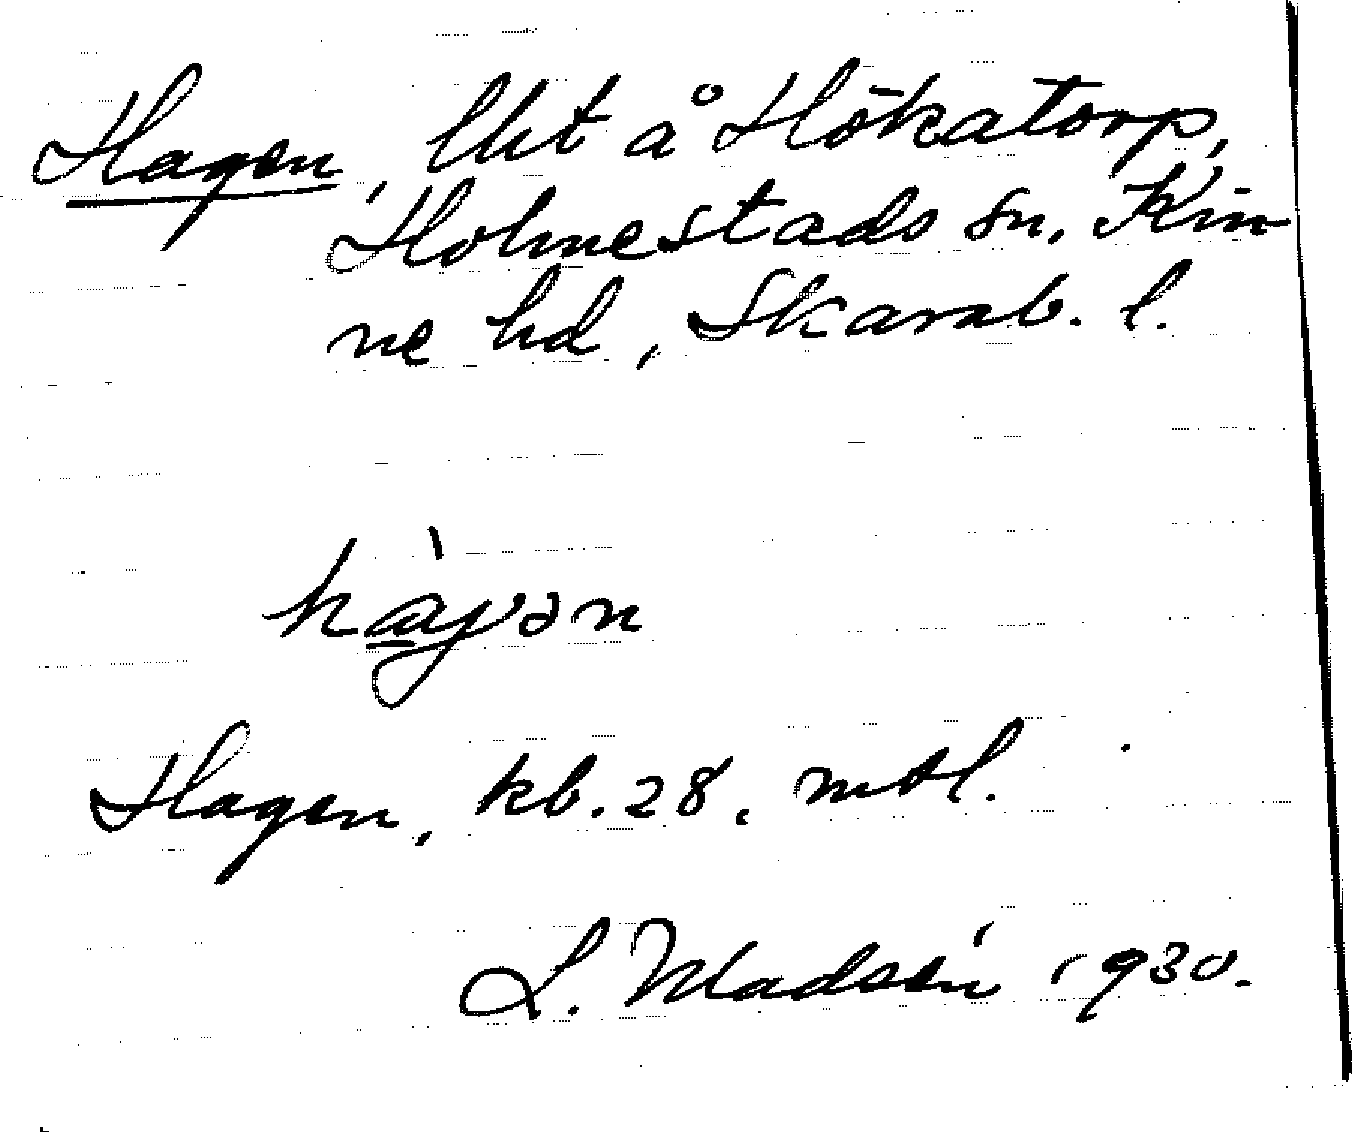 Hagen, lht å Hökatorp,
Holmestads sn, Kin
ne hd, Skarab. l.
hàgən
Hagen, kb. 28, mtl.
L. Madsén 1930.